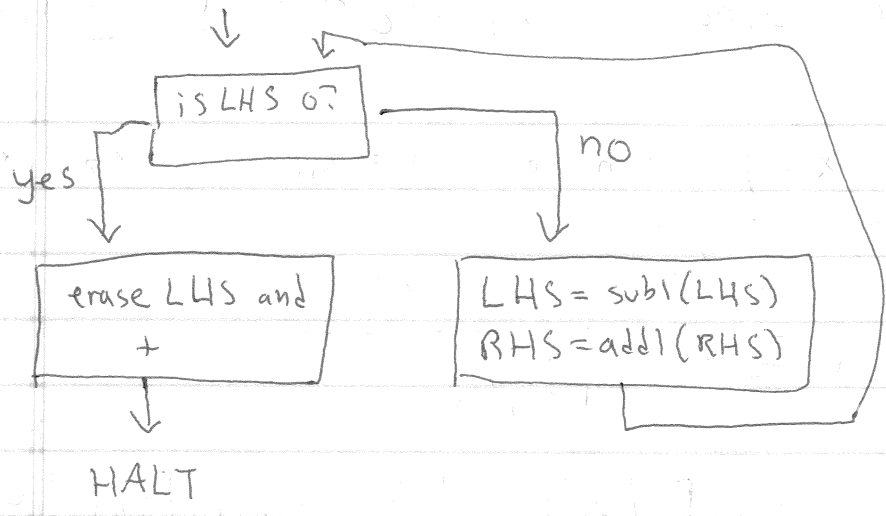 is LHS 0?
yes
no
erase LHS and
+
LHS = sub1(LHS)
RHS = add1(RHS)
HALT